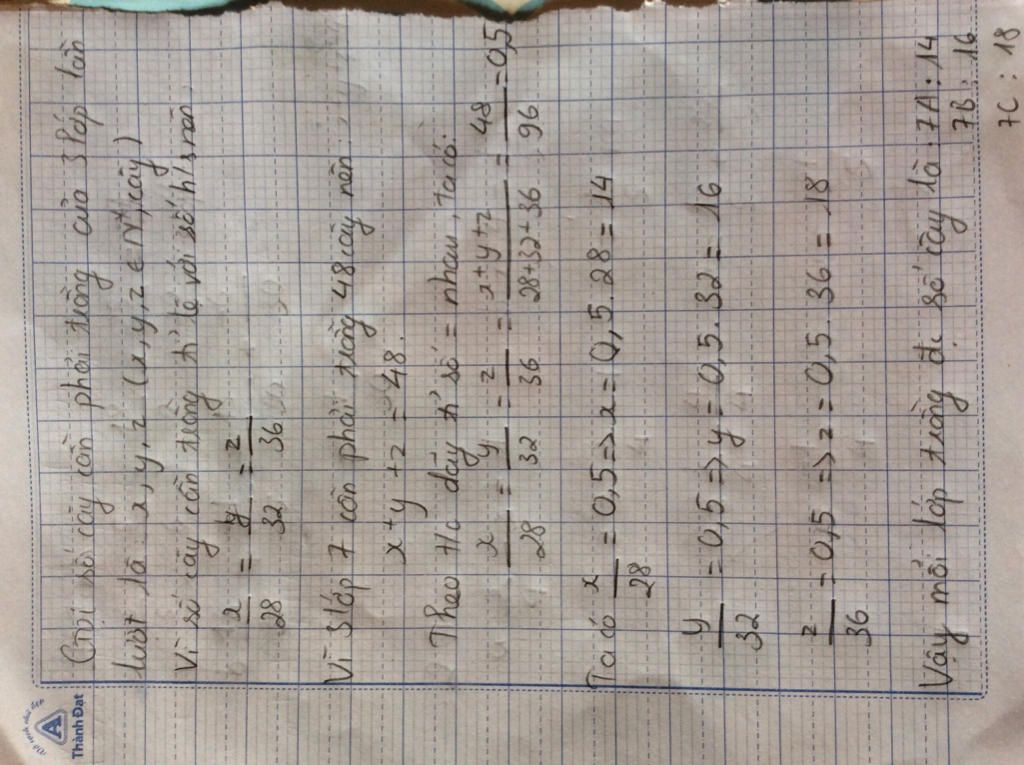 Vở trong chữ đẹp
A
Thành Đạt
Gọi số cây cần phải trồng của 3 lớp lần
lượt là x, y, z (x, y, z ∈ N*, cây)
Vì số cây cần trồng tỉ lệ với số h/s nên
x/28 = y/32 = z/36
Vì 3 lớp 7 cần phải trồng 48 cây nên:
x + y + z = 48.
Theo t/c dãy tỉ số = nhau, ta có:
x/28 = y/32 = z/36 = x+y+z/28+32+36 = 48/96 = 0,5
Ta có x/28 = 0,5 => x = 0,5 . 28 = 14
y/32 = 0,5 => y = 0,5 . 32 = 16
z/36 = 0,5 => z = 0,5 . 36 = 18
Vậy mỗi lớp trồng đc số cây là: 7A: 14
7B: 16
7C: 18